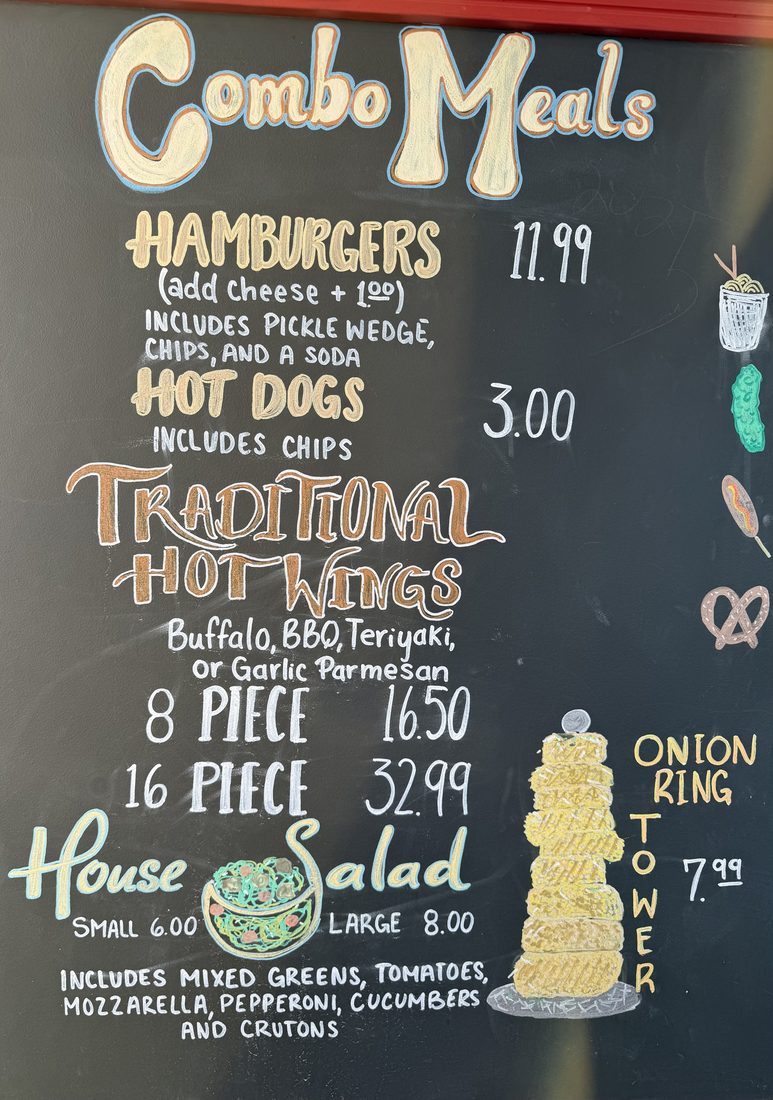 Combo Meals
HAMBURGERS 11.99
(add cheese + 1.00)
INCLUDES PICKLE WEDGE,
CHIPS, AND A SODA
HOT DOGS 3.00
INCLUDES CHIPS
TRADITIONAL
HOT WINGS
Buffalo, BBQ, Teriyaki,
or Garlic Parmesan
8 PIECE 16.50
16 PIECE 32.99
House Salad
SMALL 6.00 LARGE 8.00
INCLUDES MIXED GREENS, TOMATOES,
MOZZARELLA, PEPPERONI, CUCUMBERS
AND CRUTONS
ONION
RING
TOWER 7.99